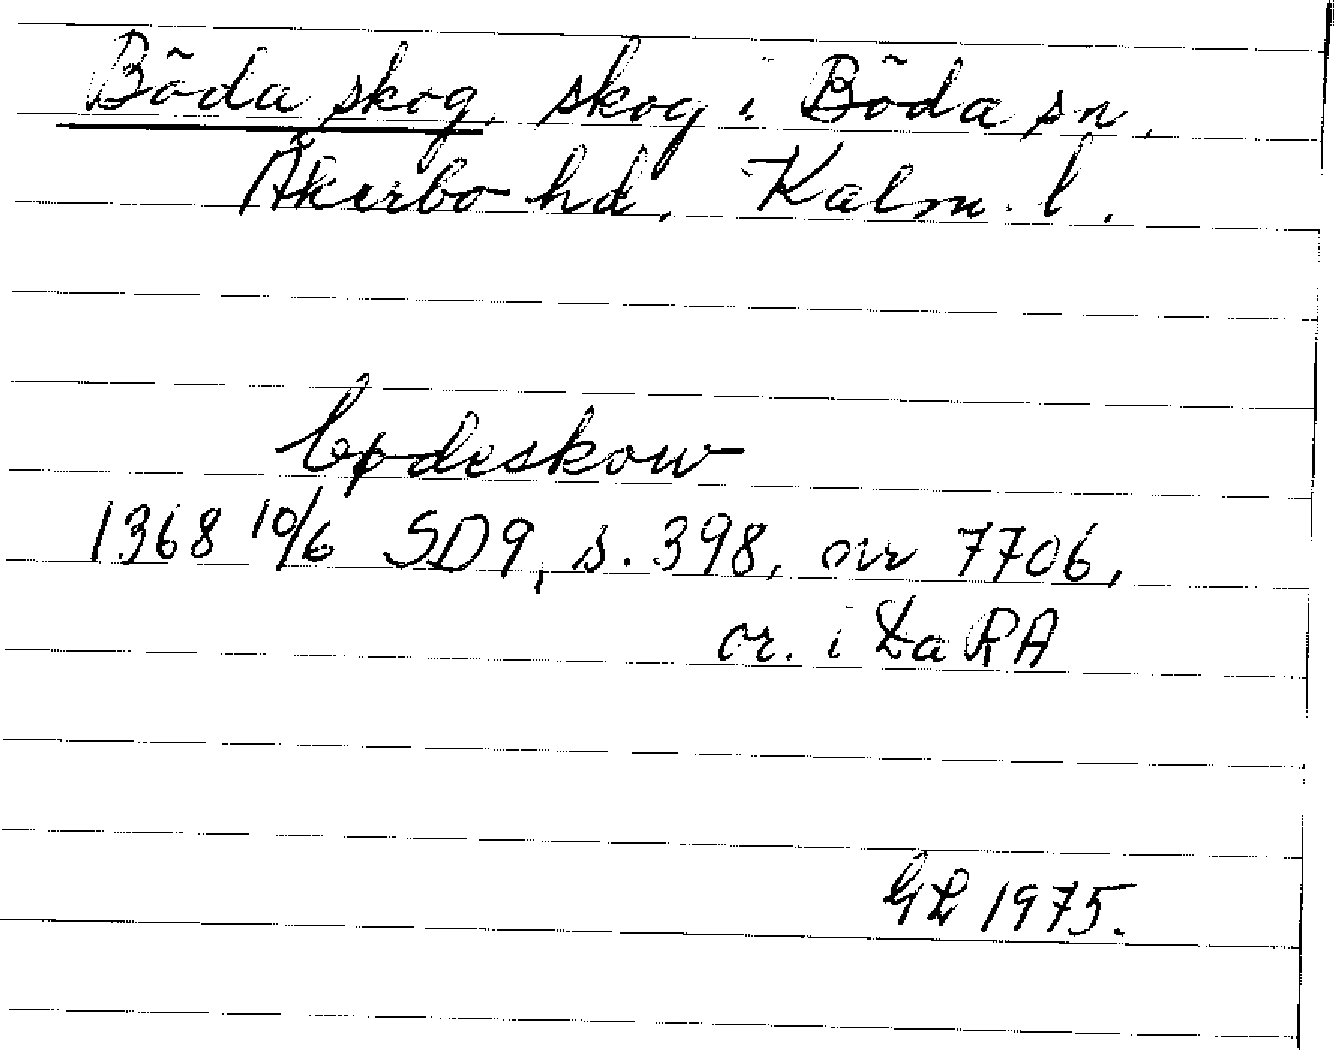 Böda skog, skog i Böda sn,
Åkerbo hd, Kalm. l.
bødeskow
1368 10/6 SD9, s. 398, nr 7706,
or. i DaRA
GL 1975.